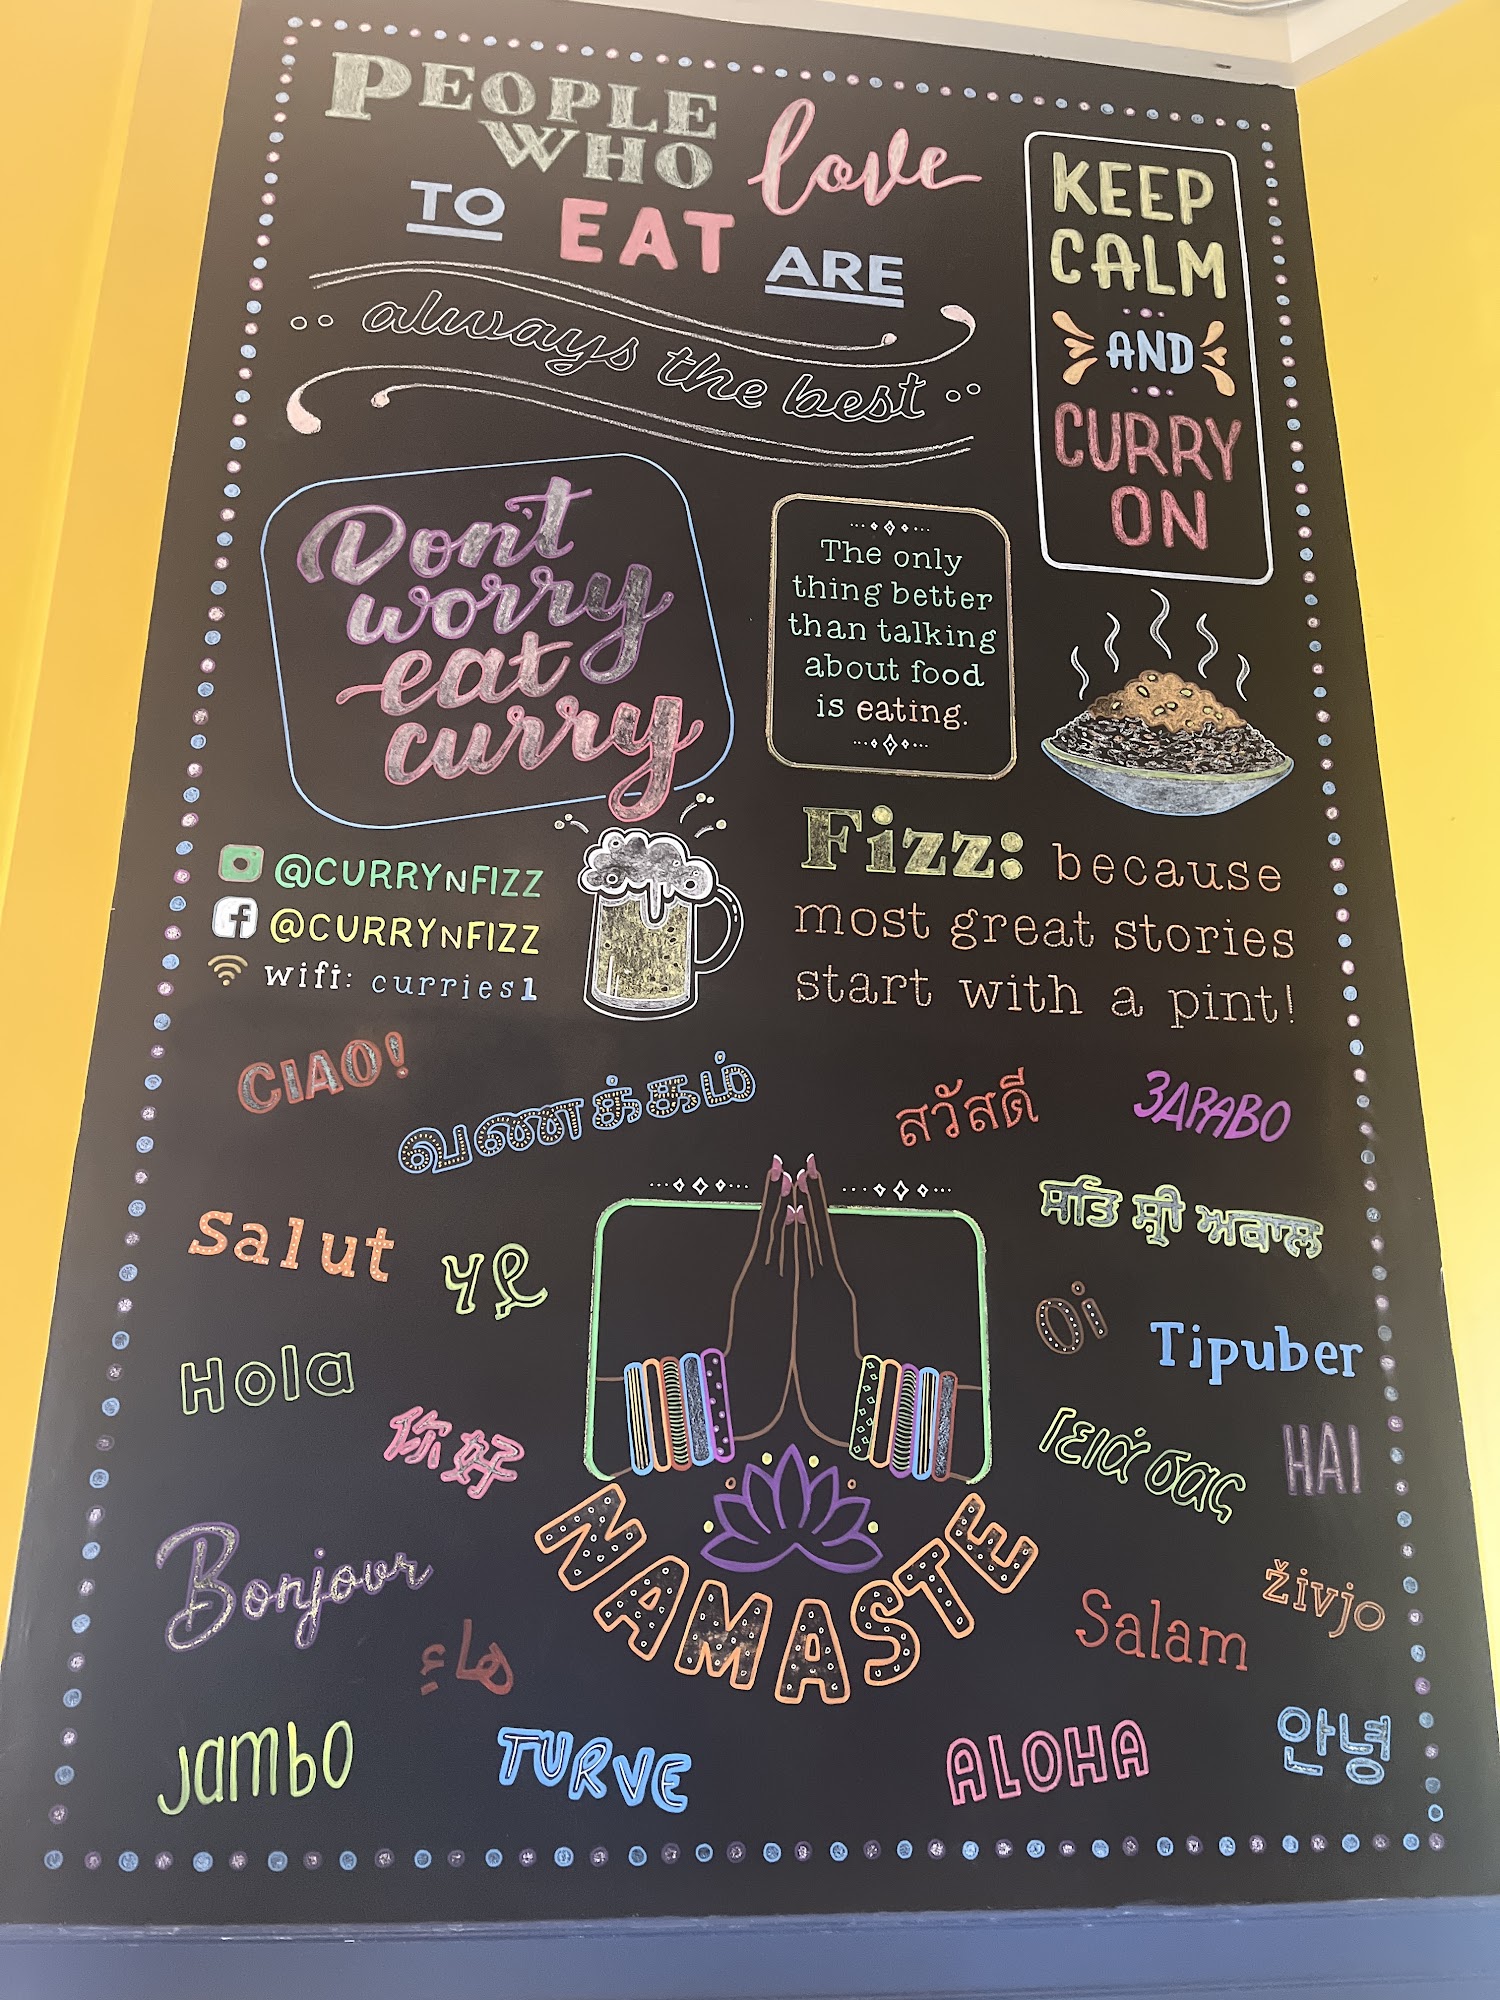 PEOPLE
WHO love
TO EAT ARE
always the best
KEEP
CALM
AND
CURRY
ON
Don't
worry
eat
curry
The only
thing better
than talking
about food
is eating.
@CURRYNFIZZ
@CURRYNFIZZ
wifi: curries1
Fizz: because
most great stories
start with a pint!
CIAO!
வணக்கம்
สวัสดี
ЗДРАВО
Salut
ਸਤਿ ਸ਼੍ਰੀ ਅਕਾਲ
Oi
Tipuber
Hola
你好
Γειά σας
HAI
Bonjour
NAMASTE
živjo
Salam
Jambo
TURVE
ALOHA
안녕